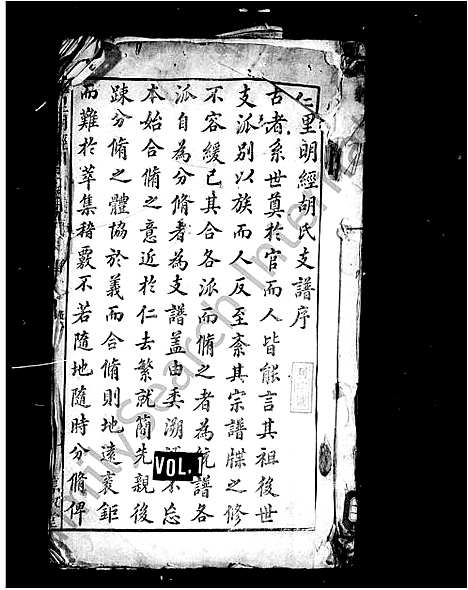 仁里明經胡氏支譜序
古者系世奠於官而人皆能言其祖後世
支派別以族而人反至紊其宗譜牒之修
不容緩已其合各派而脩之者為統譜各
派自為分脩者為支譜蓋由委溯 不忘
本始合脩之意近於仁去繁就簡先親後
踈分脩之體協於義而合脩則地遠袤鉅
而難於萃集稽覈不若隨地隨時分脩俾
VOL. 1